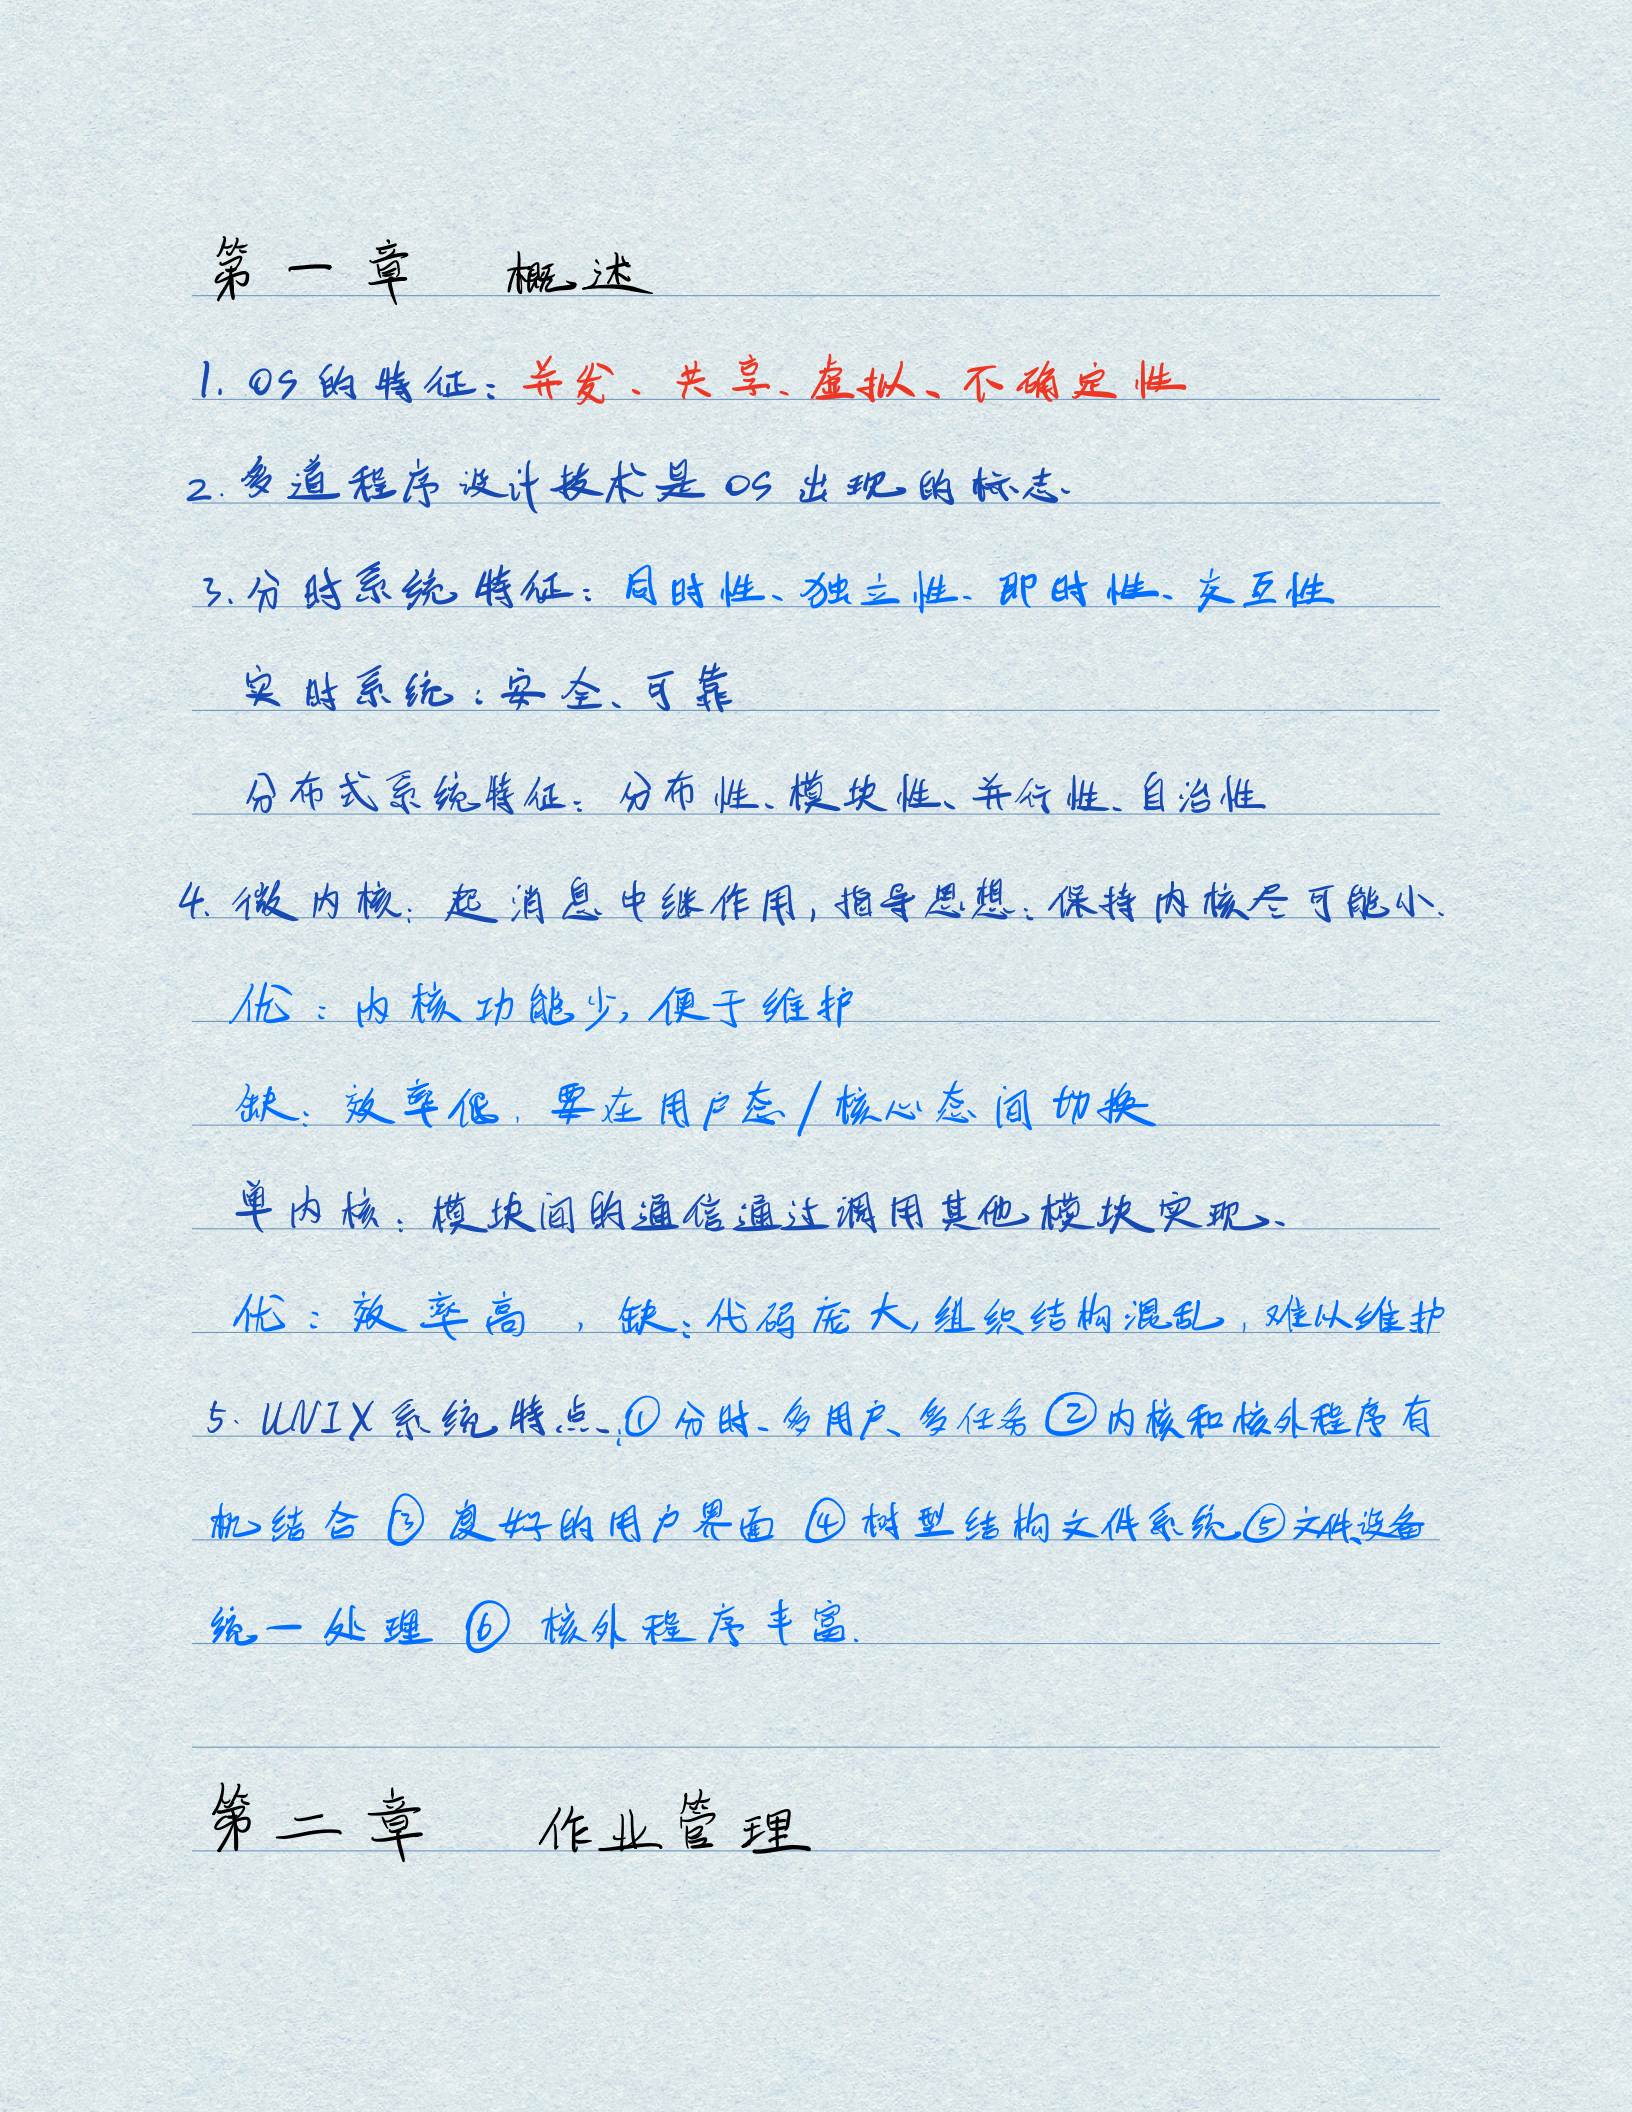 第一章 概述
1. OS的特征：并发、共享、虚拟、不确定性
2. 多道程序设计技术是OS出现的标志.
3. 分时系统特征：同时性、独立性、即时性、交互性
实时系统：安全、可靠
分布式系统特征：分布性、模块性、并行性、自治性
4. 微内核：起消息中继作用，指导思想：保持内核尽可能小.
优：内核功能少，便于维护
缺：效率低，要在用户态/核心态间切换
单内核：模块间的通信通过调用其他模块实现、
优：效率高，缺：代码庞大，组织结构混乱，难以维护
5. UNIX系统特点：①分时、多用户、多任务 ②内核和核外程序有
机结合 ③良好的用户界面 ④树型结构文件系统 ⑤文件、设备
统一处理 ⑥核外程序丰富.
第二章 作业管理